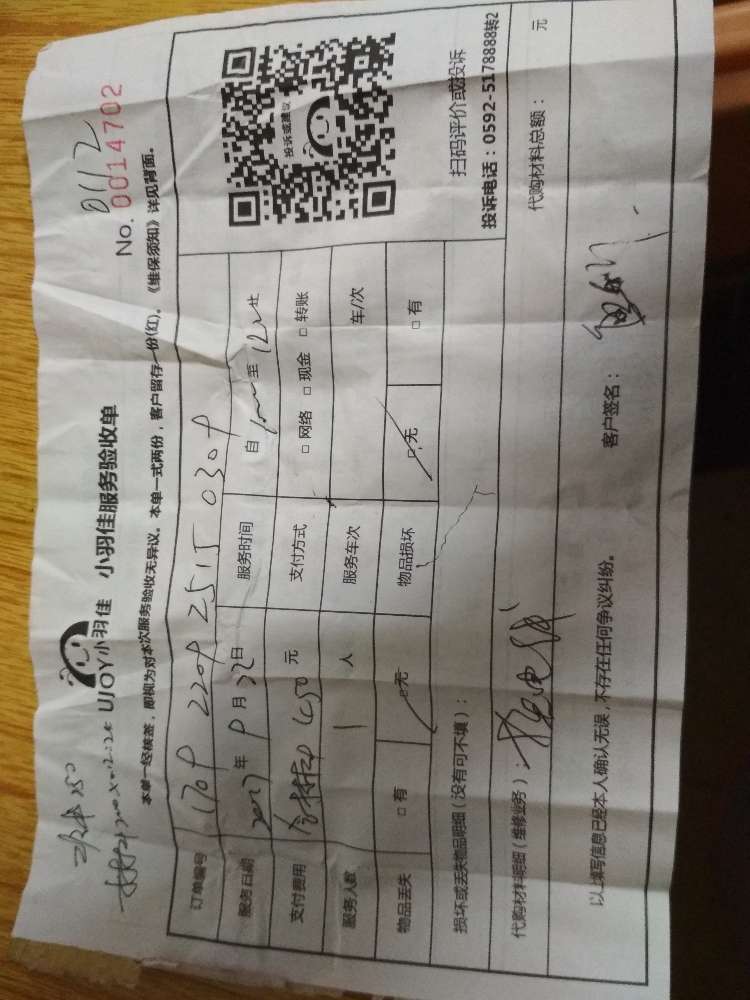 0112
No. 0014702
UJOY小羽佳 小羽佳服务验收单
本单一经核签，即视为对本次服务验收无异议。本单一式两份，客户留存一份(红)。《维保须知》详见背面。
订单编号
服务日期 2017 年 9 月 日 服务时间 自 至
支付费用 450 元 支付方式 □ 网络 □ 现金 □ 转账
服务人数 1 人 服务车次 车/次
物品丢失 □ 有 □ 无 物品损坏 □ 无 □ 有
投诉或建议
扫码评价或投诉
投诉电话：0592-5178888转2
损坏或丢失物品明细（没有可不填）：
代购材料明细（维修业务）： 代购材料总额： 元
以上填写信息已经本人确认无误，不存在任何争议纠纷。 客户签名：